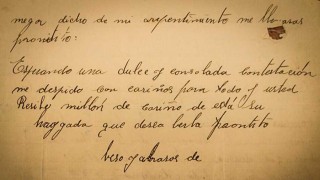 megor dicho de mi arepontimiento me llo aras
prontito:
Esperando una dulce y consolada contestación
me despido con cariños para todo y usted
Resive millón de cariño de está su
haggada que desea berla prontito
beso y abrasos de